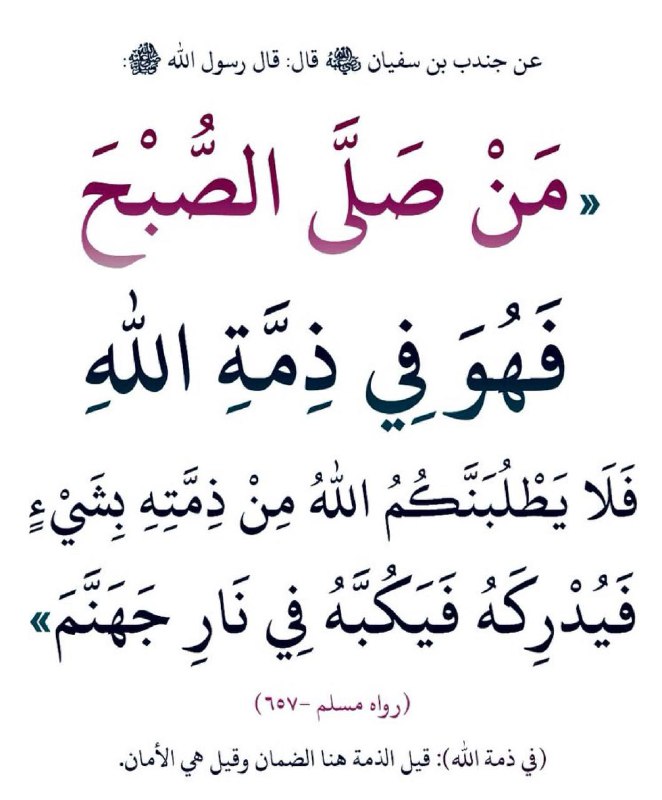 عن جندب بن سفيان رضي الله عنه قال: قال رسول الله ﷺ:
«مَنْ صَلَّى الصُّبْحَ
فَهُوَ فِي ذِمَّةِ اللهِ
فَلَا يَطْلُبَنَّكُمُ اللهُ مِنْ ذِمَّتِهِ بِشَيْءٍ
فَيُدْرِكَهُ فَيَكُبَّهُ فِي نَارِ جَهَنَّمَ»
(رواه مسلم -٦٥٧)
(في ذمة الله): قيل الذمة هنا الضمان وقيل هي الأمان.